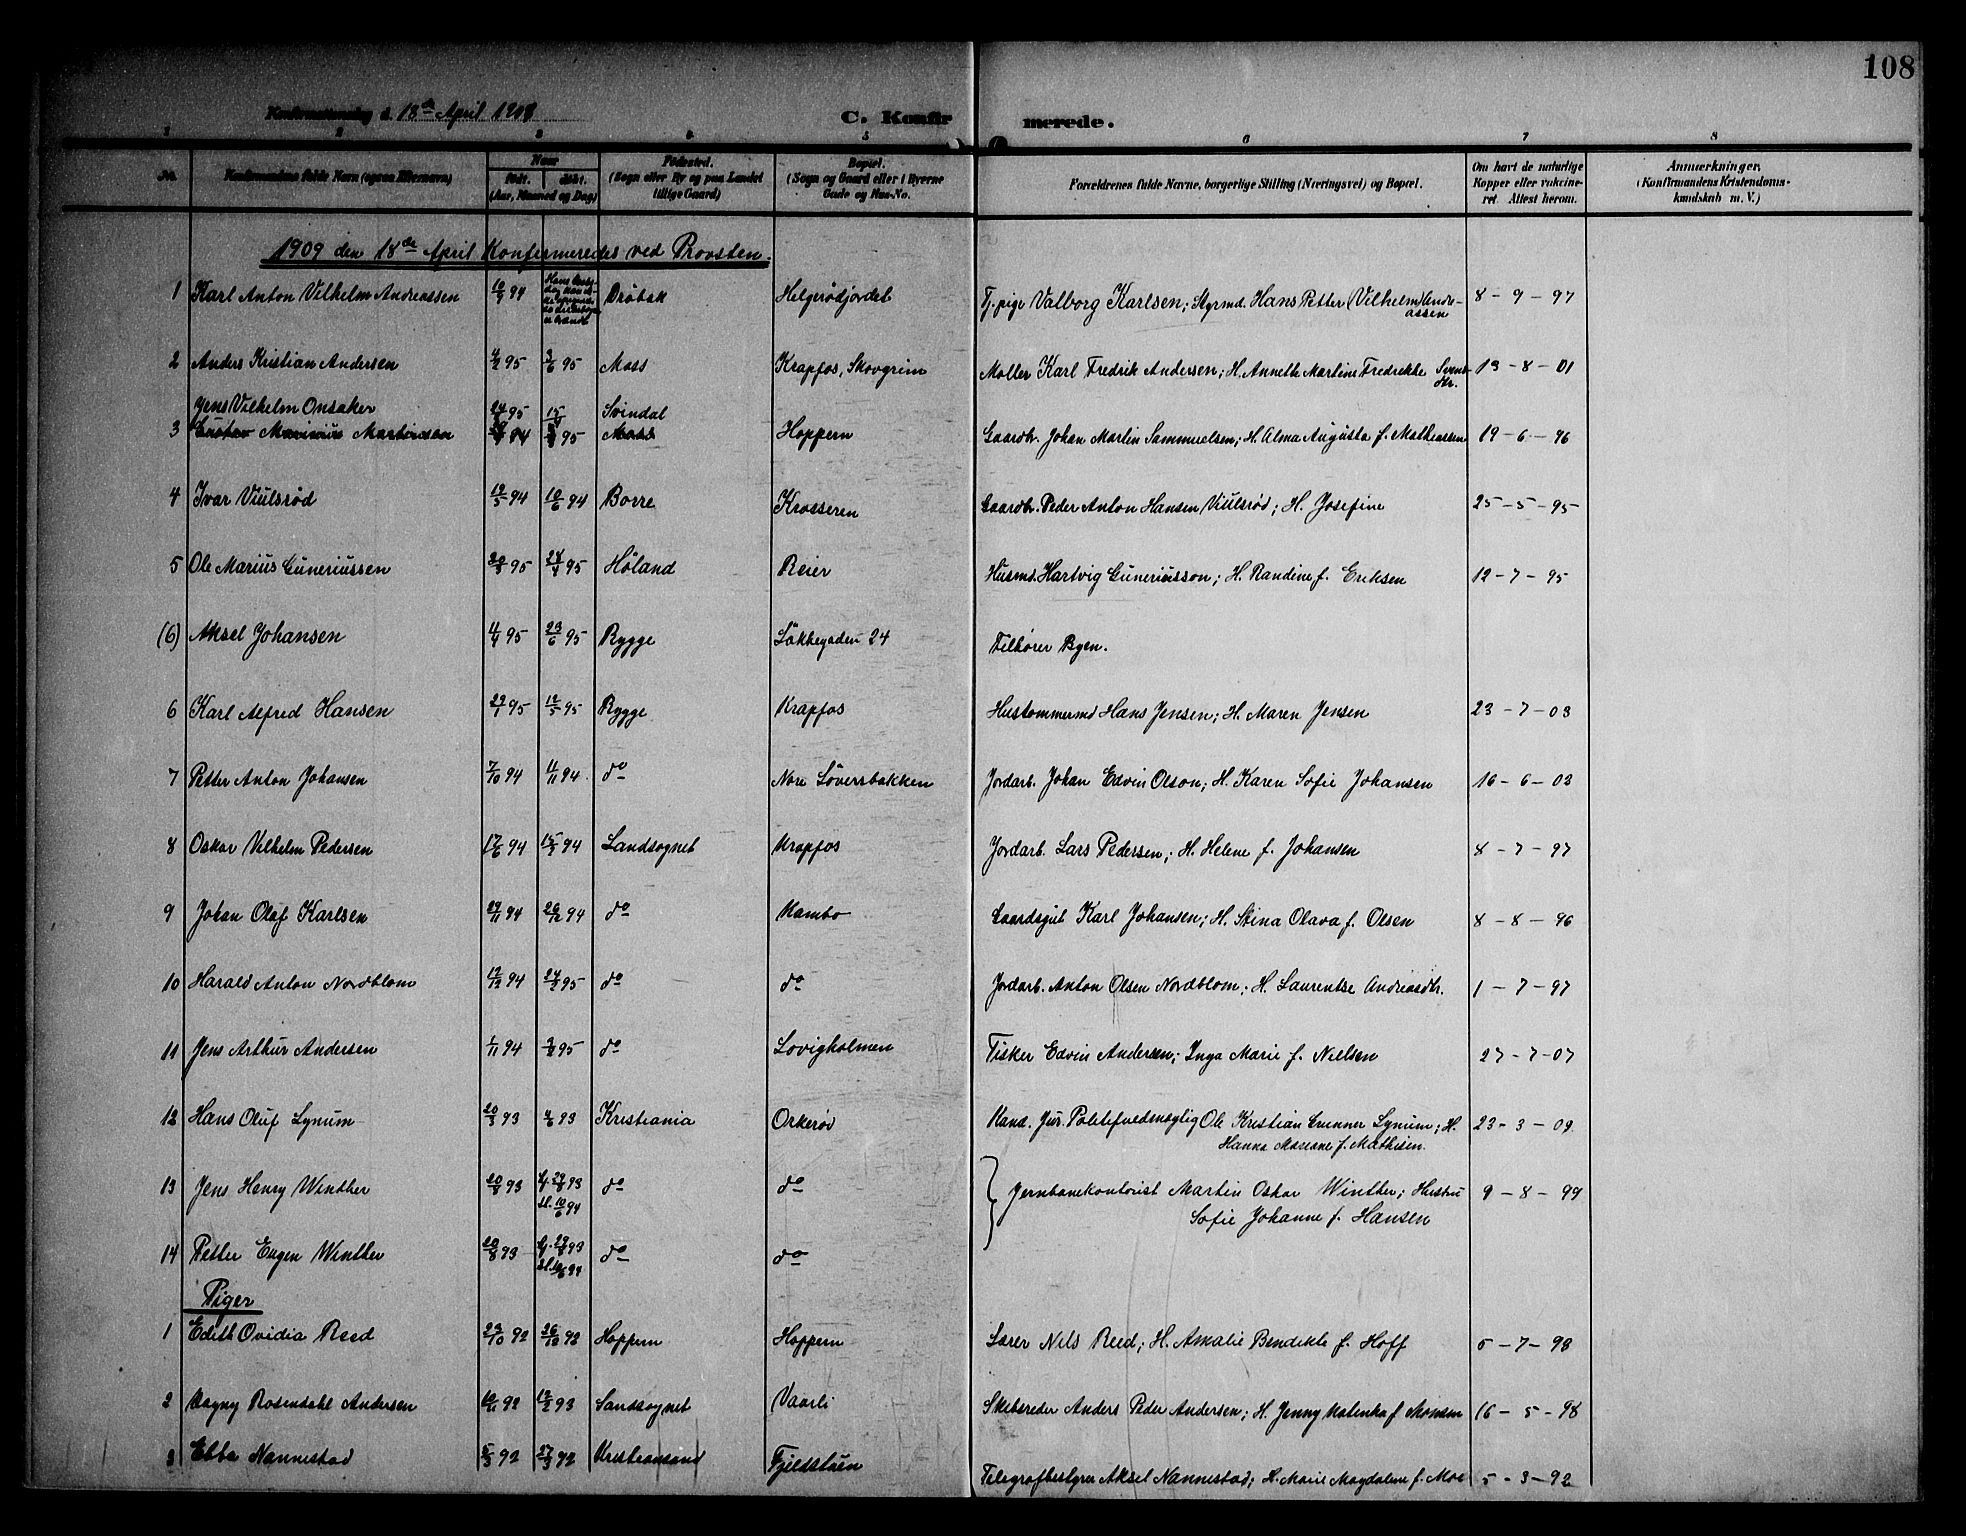 108
Konfirmationsdag d. 18de April 1909
C. Konfir merede.
1 2 3 4 5 6 7 8
No. Konfirmandens fulde Navn (ogsaa Efternavn) Naar født. døbt. (Aar, Maaned og Dag) Fødested. (Sogn eller By og paa Landet tillige Gaard) Bopæl. (Sogn og Gaard eller i Byerne Gade og Hus-No. Forældrenes fulde Navne, borgerlige Stilling (Næringsvei) og Bopæl. Om havt de naturlige Kopper eller vakcineret. Attest herom. Anmærkninger. (Konfirmandens Kristendomskundskab m. V.)
1909 den 18de April Konfirmeredes ved Provsten.
1 Karl Anton Vilhelm Andreassen 10/9 94 Drøbak Helgerødjordet Tj. pige Valborg Karlsen; Styrmd. Hans Petter (Vilhelm) Andreassen 8-9-97
2 Anders Kristian Andersen 4/2 95 3/6 95 Moss Krapfos, Skovgrim Møller Karl Fredrik Andersen; H. Anneth Martine Fredrikke 13-8-01
Jens Vilhelm Onsaker 95 15 Svindal
3 Gustav Marinius Martinsen 94 95 Moss Hoppern Gaardbr. Johan Martin Sammuelsen; H. Alma Augusta f. Matheassen 19-6-96
4 Ivar Viulsrød 19/5 94 10/6 94 Borre Krosseren Gaardbr. Peder Anton Hansen Viulsrød; H. Josefine 25-5-95
5 Ole Marius Guneriussen 95 28/4 95 Høland Reier Husmd. Hartvig Guneriusson; H. Randine f. Eriksen 12-7-95
(6) Aksel Johansen 11/4 95 23/6 95 Rygge Løkkegaden 24 Tilhører Byen.
6 Karl Alfred Hansen 29/1 95 12/5 95 Rygge Krapfos Hustømmermd Hans Jensen; H. Maren Jensen 23-7-03
7 Petter Anton Johansen 7/10 94 11/11 94. do Nore Løversbakken Jordarb. Johan Edvin Olson; H. Karen Sofie Johansen 16-6-03
8 Oskar Vilhelm Pedersen 17/6 94 94 Landsognet Krapfos Jordarb. Lars Pedersen; H. Helene f. Johansen 8-7-97
9 Johan Olaf Karlsen 29/11 94 26/12 94 do Kambo Gaardsgut Karl Johansen; H. Stina Olava f. Olsen 8-8-96
10 Harald Anton Nordblom 12/12 94 24/2 95 do do Jordarb. Anton Olsen Nordblom; H. Laurentse Andreasdtr. 1-7-97
11 Jens Arthur Andersen 1/11 94 3/2 95 do Lovigholmen Fisker Edvin Andersen; Inga Marie f. Nielsen 27-7-07
12 Hans Oluf Lynum 20/3 93 4/6 93 Kristiania Orkerød Kand. Jur. Politifuldmægtig Ole Kristian Grunner Lynum; H. 23-3-09
Hanna Mariane f. Mathisen.
13 Jens Henry Winther 20/8 93 Hj. 29/8 93 St. 10/6 94 do do } Jernbanekontorist Martin Oskar Winther; Hustru 9-8-99
Sofie Johanne f. Hansen
14 Petter Eugen Winther 20/8 93 Hj. 29/8 93 St. 10/6 94 do do
Piger
1 Edith Ovidia Reed 23/10 92 26/12 92 Hoppern Hoppern Lærer Nils Reed; H. Amalie Bendikte f. Hoff 5-7-98
2 Dagny Rosendahl Andersen 10/11 92 12/2 93 Landsognet Vaarli Skibsreder Anders Peder Andersen; H. Jenny Malenka f. Monsen 16-5-98
3 Ebba Nannestad 5/3 92 27/3 92 Kristiansand Fjeldstuen Telegrafbestyrer Aksel Nannestad; H. Marie Magdalene f. Moe 5-3-92